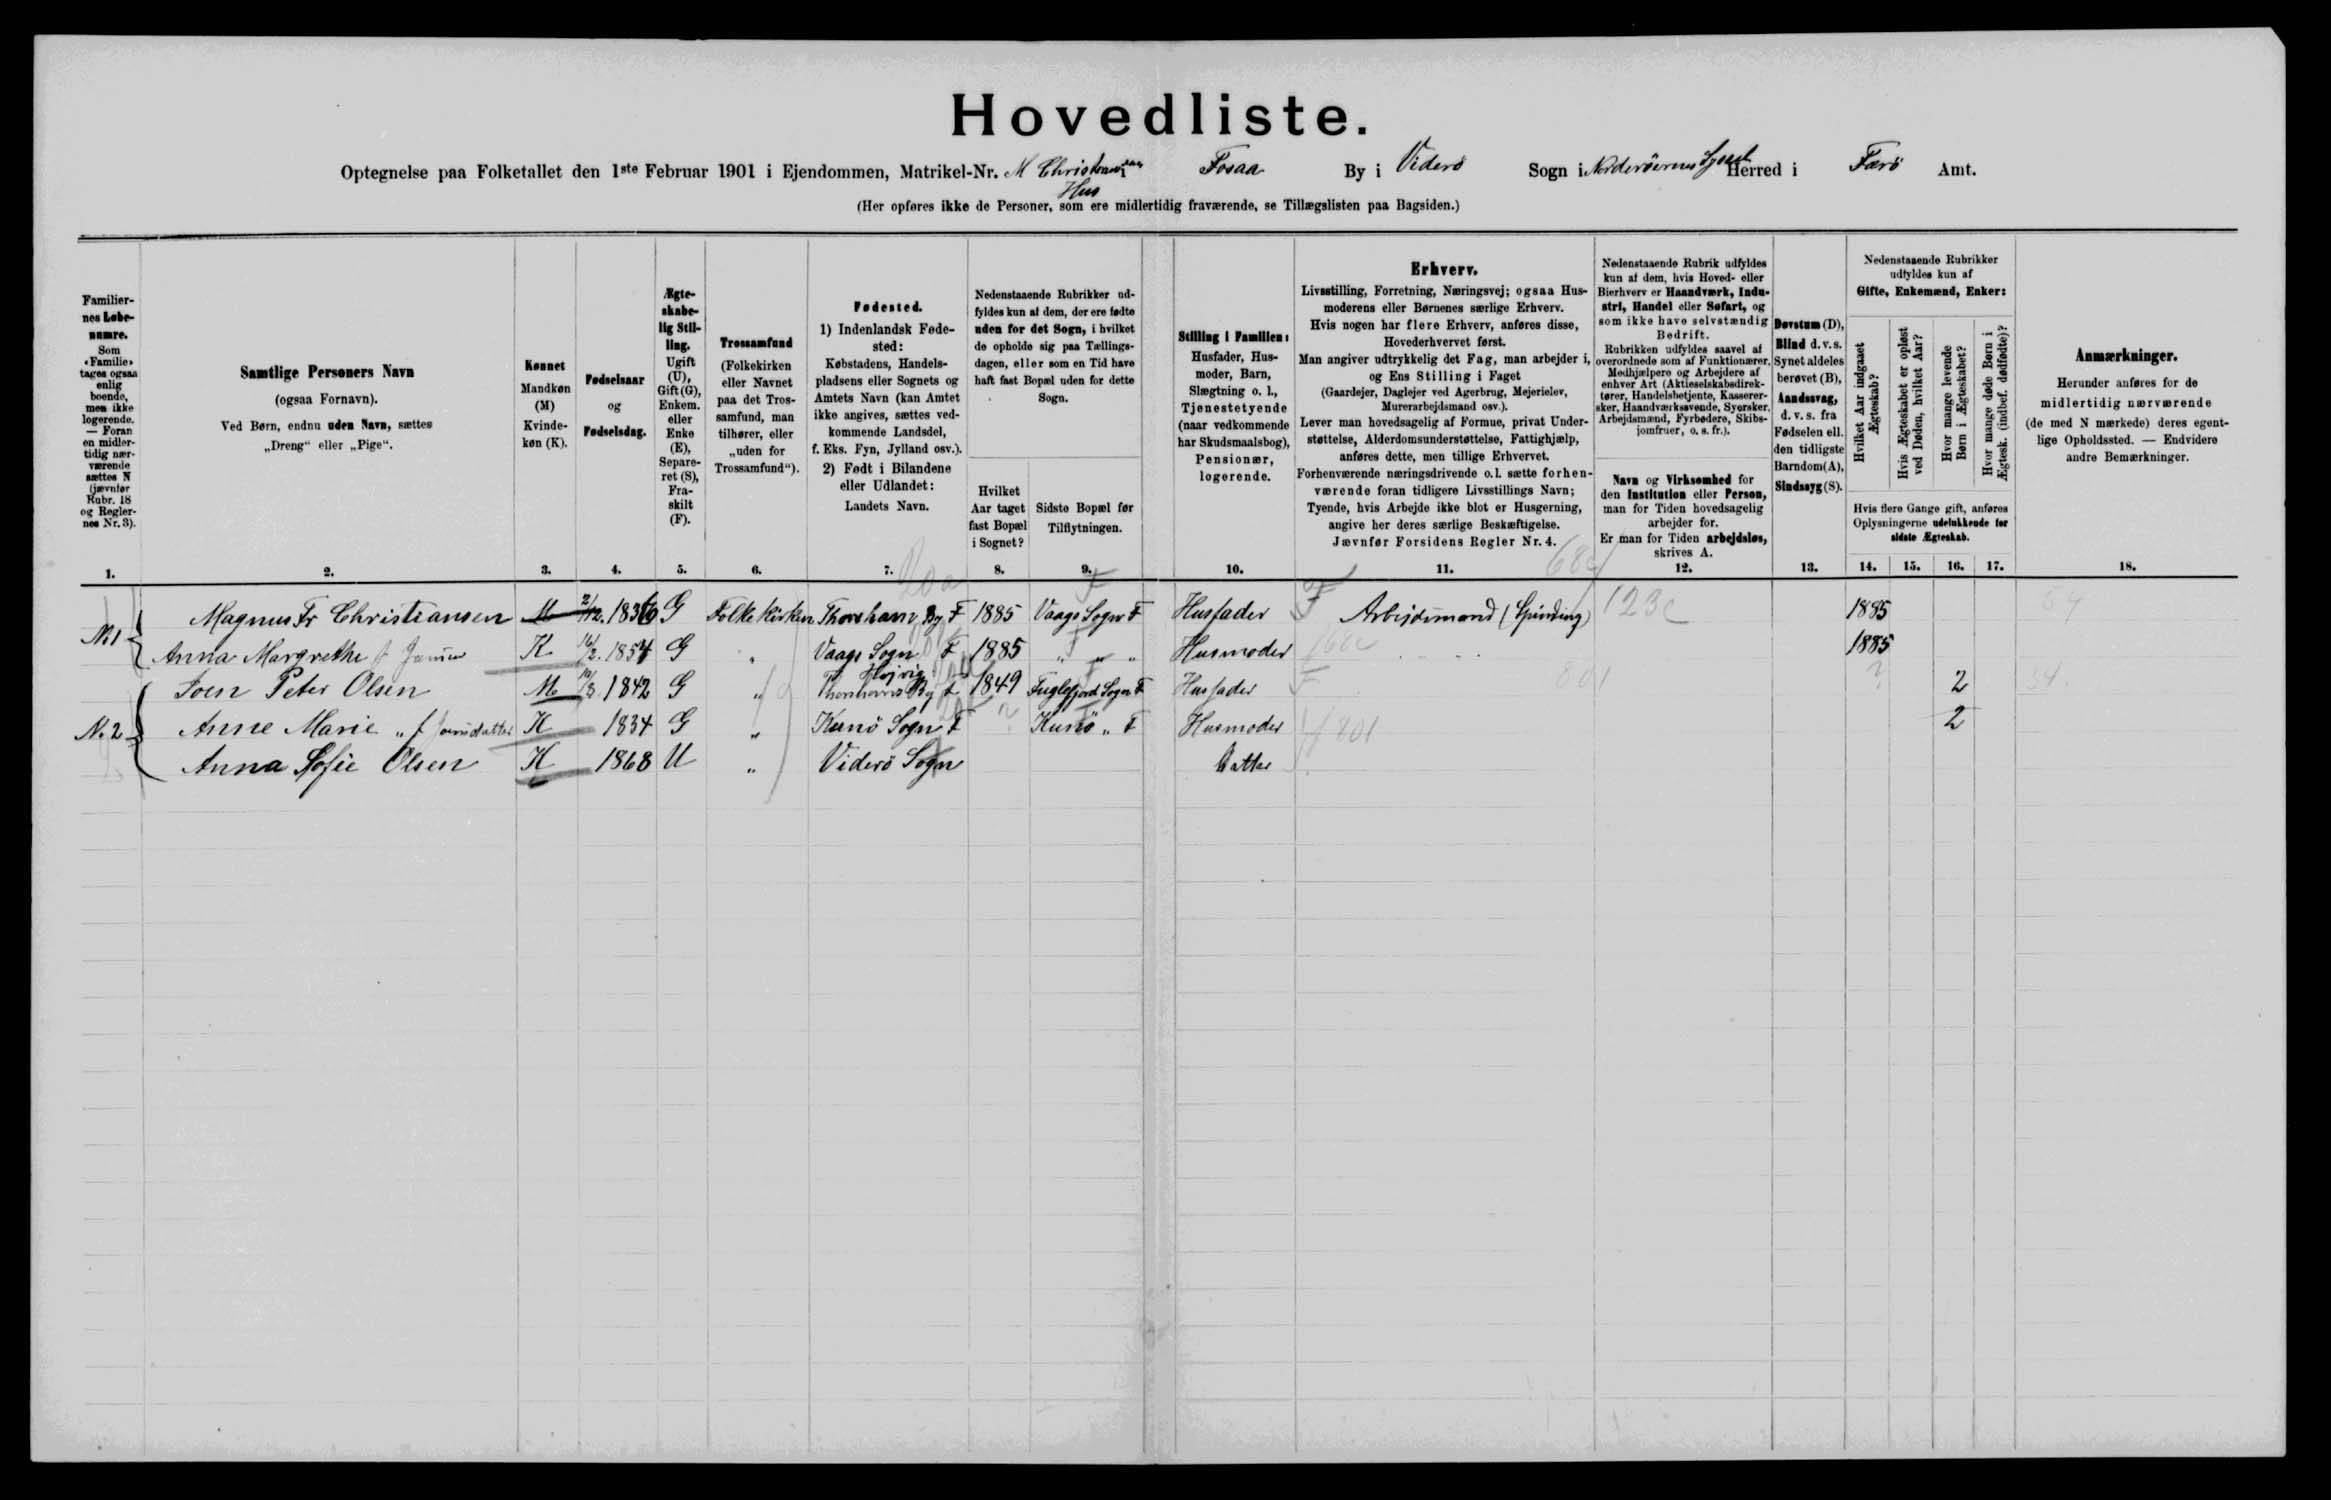 Hovedliste.
Optegnelse paa Folketallet den 1ste Februar 1901 i Ejendommen, Matrikel-Nr. M Christiansens Hus Fosaa By i Viderö Sogn i Norderöernes Syssel Herred i Færö Amt.
(Her opføres ikke de Personer, som ere midlertidig fraværende, se Tillægslisten paa Bagsiden.)
Familiernes Løbenumre.
Som «Familie» tages ogsaa enlig boende, men ikke logerende. — Foran en midlertidig nærværende sættes N (jævnfør Rubr. 18 og Reglernes Nr. 3).
Samtlige Personers Navn
(ogsaa Fornavn).
Ved Børn, endnu uden Navn, sættes
„Dreng“ eller „Pige“.
Kønnet
Mandkøn (M)
Kvindekøn (K).
Fødselsaar
og
Fødselsdag.
Ægteskabelig Stilling.
Ugift (U), Gift (G), Enkem. eller Enke (E), Separeret (S), Fraskilt (F).
Trossamfund
(Folkekirken eller Navnet paa det Trossamfund, man tilhører, eller „uden for Trossamfund“).
Fødested.
1) Indenlandsk Fødested:
Købstadens, Handelspladsens eller Sognets og Amtets Navn (kan Amtet ikke angives, sættes vedkommende Landsdel, f. Eks. Fyn, Jylland osv.).
2) Født i Bilandene eller Udlandet:
Landets Navn.
Nedenstaaende Rubrikker udfyldes kun af dem, der ere fødte uden for det Sogn, i hvilket de opholde sig paa Tællingsdagen, eller som en Tid have haft fast Bopæl uden for dette Sogn.
Hvilket Aar taget fast Bopæl i Sognet?
Sidste Bopæl før Tilflytningen.
Stilling i Familien:
Husfader, Husmoder, Barn, Slægtning o. l., Tjenestetyende (naar vedkommende har Skudsmaalsbog), Pensionær, logerende.
Erhverv.
Livsstilling, Forretning, Næringsvej; ogsaa Husmoderens eller Børnenes særlige Erhverv.
Hvis nogen har flere Erhverv, anføres disse, Hovederhvervet først.
Man angiver udtrykkelig det Fag, man arbejder i, og Ens Stilling i Faget
(Gaardejer, Daglejer ved Agerbrug, Mejerielev, Murerarbejdsmand osv.).
Lever man hovedsagelig af Formue, privat Understøttelse, Alderdomsunderstøttelse, Fattighjælp, anføres dette, men tillige Erhvervet.
Forhenværende næringsdrivende o. l. sætte forhenværende foran tidligere Livsstillings Navn;
Tyende, hvis Arbejde ikke blot er Husgerning, angive her deres særlige Beskæftigelse.
Jævnfør Forsidens Regler Nr. 4.
Nedenstaaende Rubrik udfyldes kun af dem, hvis Hoved- eller Bierhverv er Haandværk, Industri, Handel eller Søfart, og som ikke have selvstændig Bedrift.
Rubrikken udfyldes saavel af overordnede som af Funktionærer, Medhjælpere og Arbejdere af enhver Art (Aktieselskabsdirektører, Handelsbetjente, Kasserersker, Haandværkssvende, Syersker, Arbejdsmænd, Fyrbødere, Skibsjomfruer, o. s. fr.).
Navn og Virksomhed for den Institution eller Person, man for Tiden hovedsagelig arbejder for.
Er man for Tiden arbejdsløs, skrives A.
Døvstum (D), Blind d. v. s. Synet aldeles berøvet (B), Aandssvag, d. v. s. fra Fødselen ell. den tidligste Barndom (A), Sindssyg (S).
Nedenstaaende Rubrikker udfyldes kun af
Gifte, Enkemænd, Enker:
Hvilket Aar indgaaet Ægteskab?
Hvis Ægteskabet er opløst ved Døden, hvilket Aar?
Hvor mange levende Børn i Ægteskabet?
Hvor mange døde Børn i Ægtesk. (indbef. dødfødte)?
Hvis flere Gange gift, anføres Oplysningerne udelukkende for sidste Ægteskab.
Anmærkninger.
Herunder anføres for de midlertidig nærværende (de med N mærkede) deres egentlige Opholdssted. — Endvidere andre Bemærkninger.
1. 2. 3. 4. 5. 6. 7. 8. 9. 10. 11. 12. 13. 14. 15. 16. 17. 18.
No 1 Magnus Fr Christiansen M 2/12. 1836 G Folkekirken Thorshavn By F 1885 Vaags Sogn F Husfader Arbejdsmand (Spinding) 123c 1885 54
Anna Margrethe f K 16/2. 1854 G „ Vaags Sogn F 1885 „ „ „ Husmoder 1885
No 2 Joen Peter Olsen M 1842 G „ Højvig Thorshavns By F 1849 Fuglefjord Sogn F Husfader 801 ? 2 54.
Anne Marie „ f K 1834 G „ Kunö Sogn F ? Kunö „ F Husmoder 801 2
Anna Sofie Olsen K 1868 U „ Viderö Sogn Datter